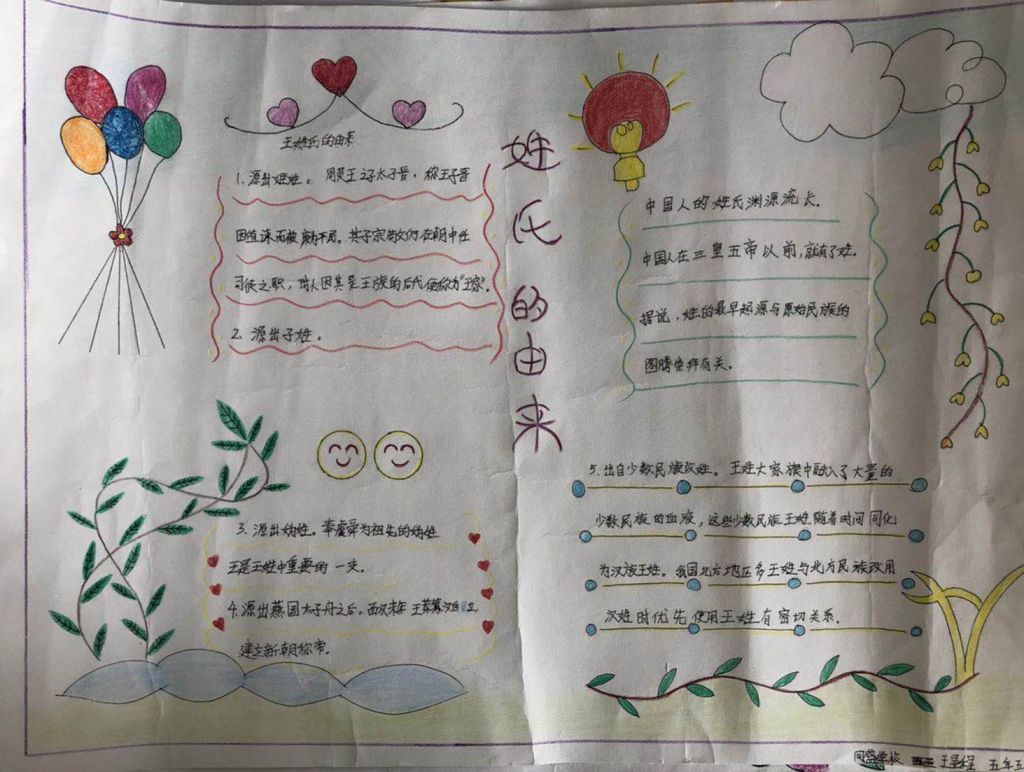 姓氏的由来
王姓氏的由来
1. 源出姬姓。周灵王之子太子晋,称王子晋
因直谏而被废为平民。其子宗敬仍在朝中任
司徒之职,时人因其是王族的后代便称为“王家”。
2. 源出子姓。
中国人的姓氏渊源流长.
中国人在三皇五帝以前,就有了姓.
据说,姓的最早起源与原始民族的
图腾崇拜有关。
3. 源出妫姓。奉虞舜为祖先的妫姓
王是王姓中重要的一支.
4. 源出燕国太子丹之后。西汉末年 王莽篡汉自立
建立新朝称帝。
5. 出自少数民族改姓。王姓大家族中融入了大量的
少数民族的血液,这些少数民族王姓随着时间同化
为汉族王姓。我国北方地区多王姓与北方民族改用
汉姓时优先使用王姓有密切关系.
学校 王 程 五年五